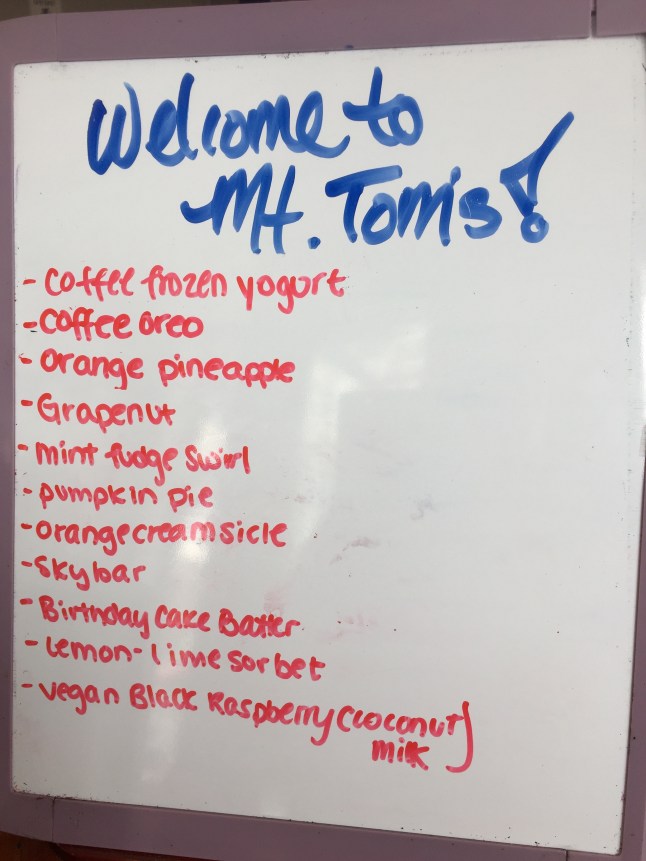 Welcome to
Mt. Tom's!
- Coffee frozen yogurt
- Coffee oreo
- Orange pineapple
- Grapenut
- mint fudge swirl
- pumpkin pie
- orange creamsicle
- Skybar
- Birthday Cake Batter
- Lemon-lime sorbet
- Vegan Black Raspberry (coconut
milk)